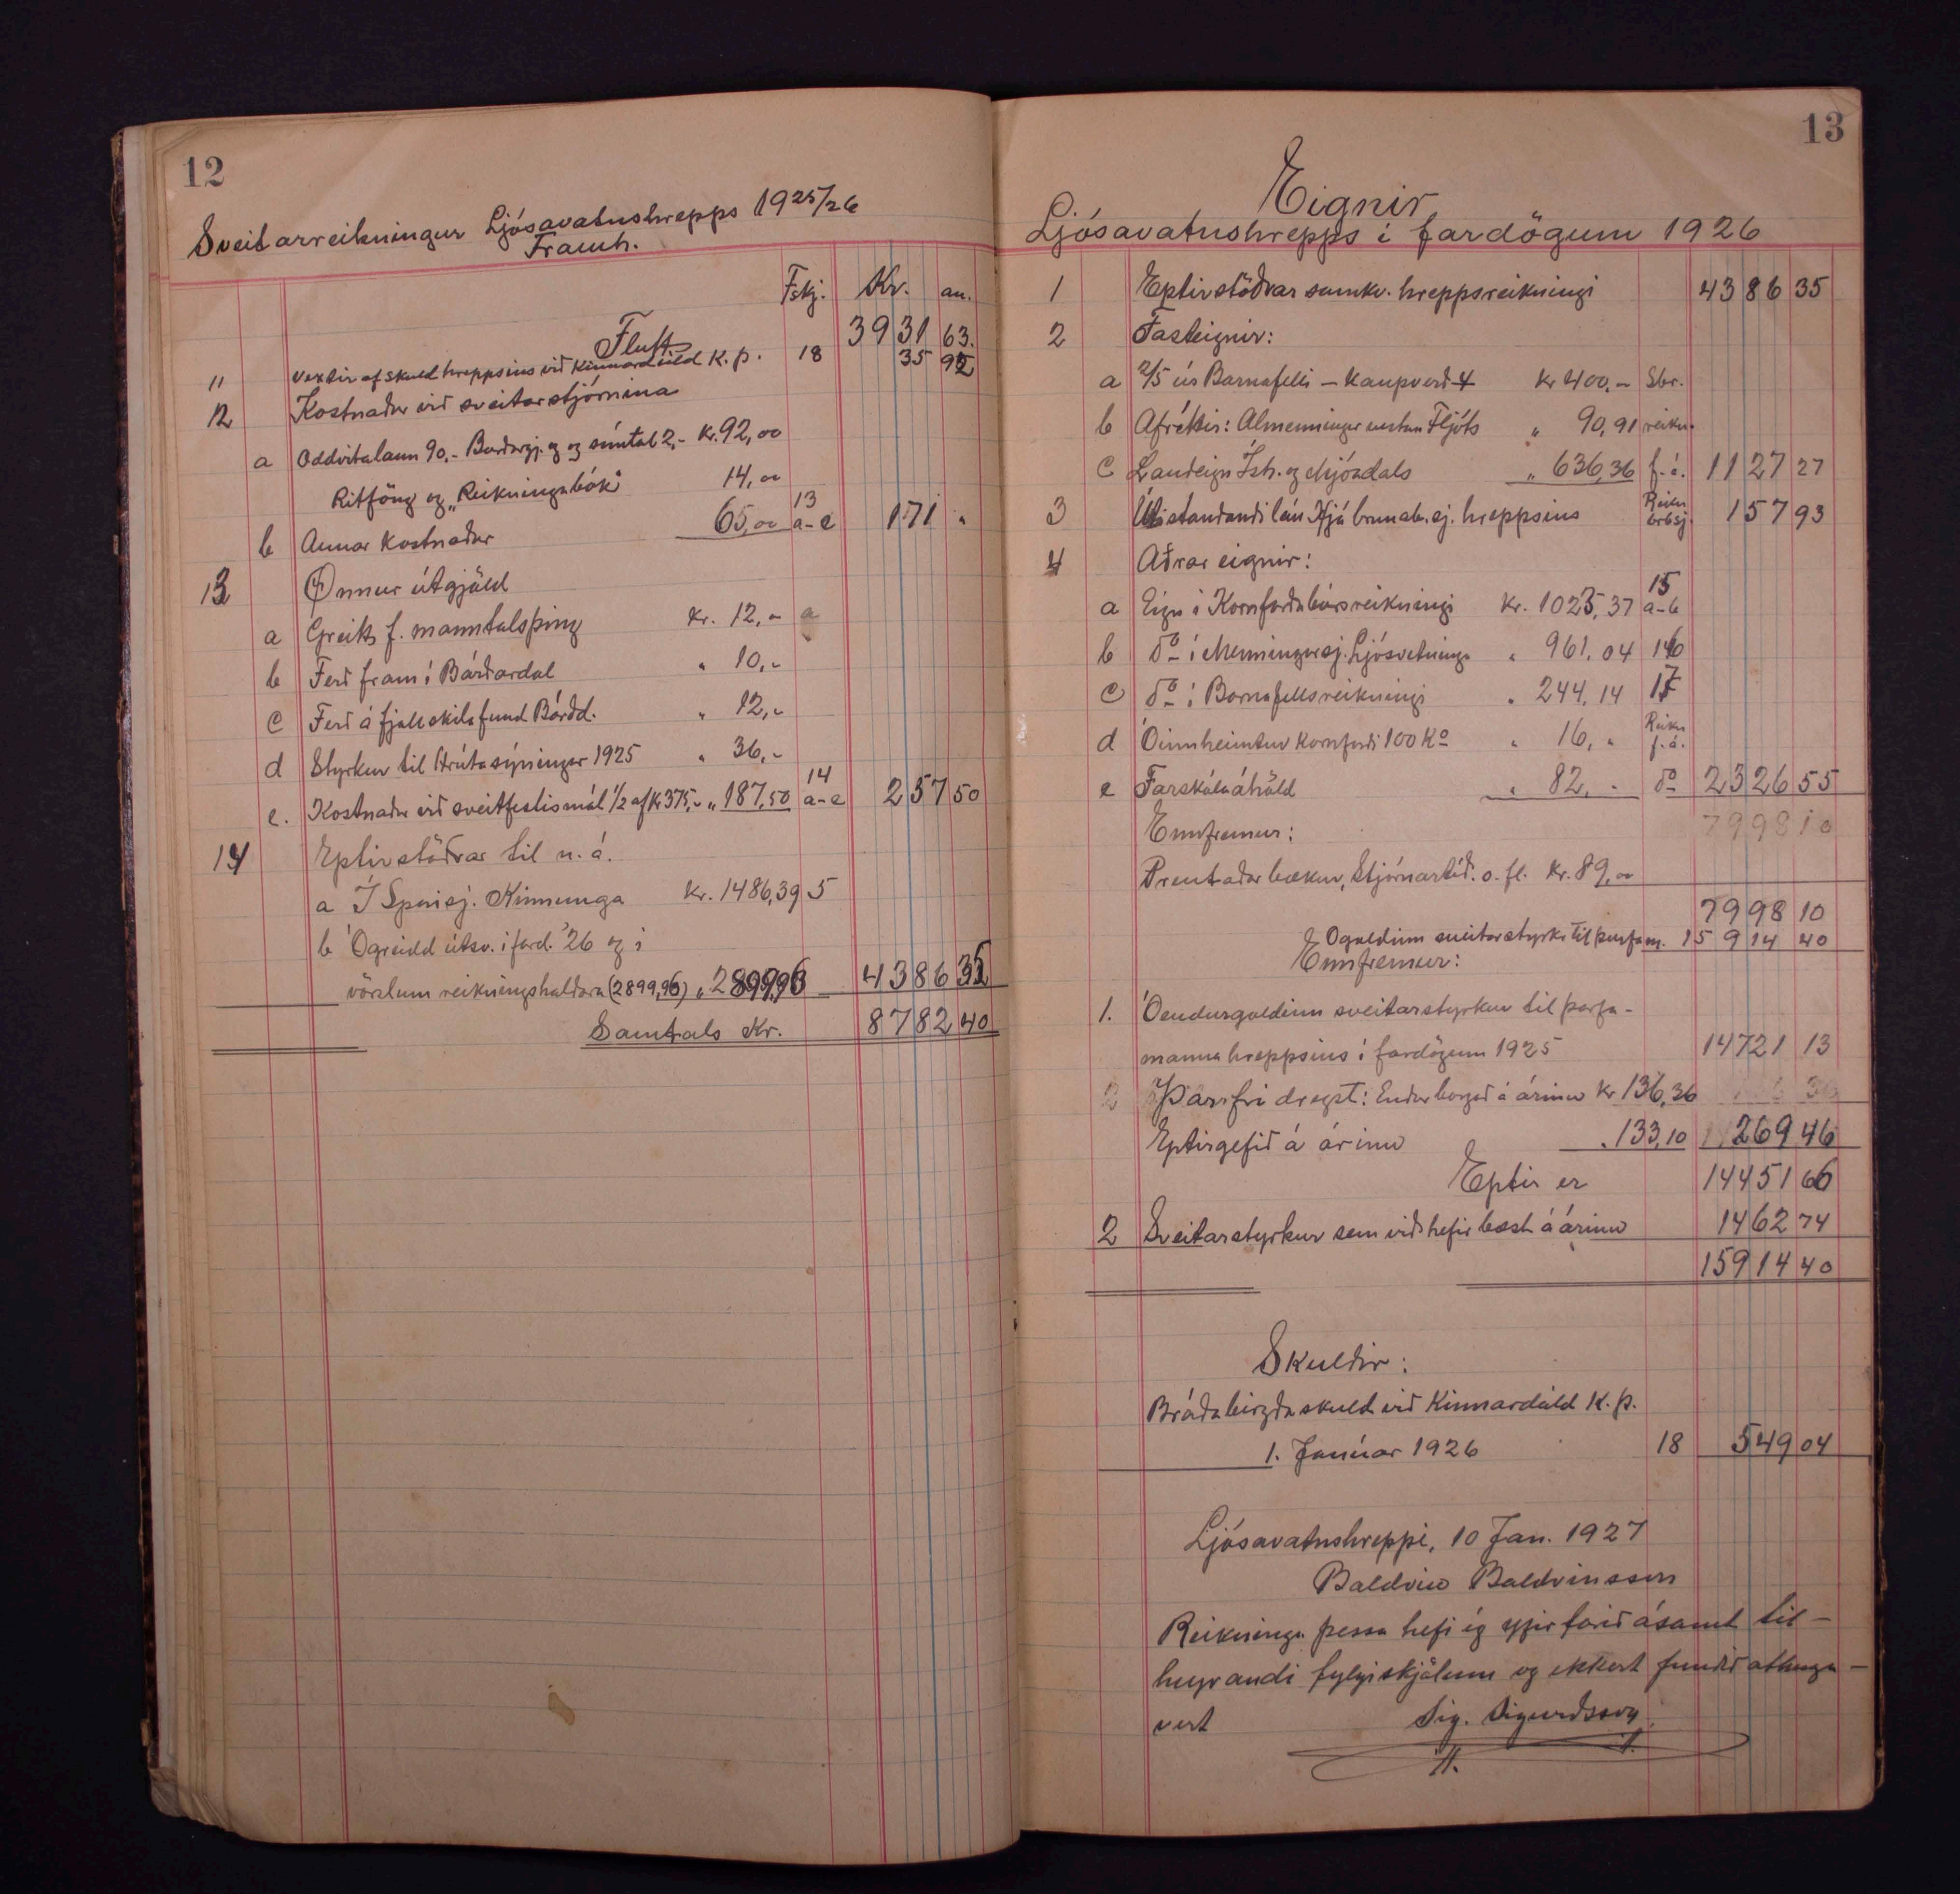 12
Sveitarreikningur Ljósavatnshrepps 1925/26
Framh.
Fskj. Kr. au.
Flutt 3931 63.
11 Vextir af skuld hreppsins við Kinnardeild K.þ. 18 35 92
12 Kostnaður við sveitarstjórnina
a Oddvitalaun 90,- Burðargj. og símtal 2,- Kr. 92,00
Ritföng og „Reikningabók" 14,00
b Annar kostnaður 65,00 13 a-e 171 "
13 Önnur útgjöld
a Greitt f. manntalsþing Kr. 12,- a
b Ferð fram í Bárðardal " 10,-
c Ferð á fjallskilafund Bárðd. " 12,-
d Styrkur til Hrútasýningar 1925 " 36,-
e. Kostnaður við sveitfestismál 1/2 af Kr 375,- " 187,50 14 a-e 257 50
14 Eptirstöðvar til n. á.
a Í Sparisj. Kinnunga Kr. 1486,39 5
b Ógreidd útsv. í fard. '26 og í
vörslum reikningshaldara (2899,96) " 2899,96 4386 35
Samtals Kr. 8782 40
13
Eignir
Ljósavatnshrepps í fardögum 1926
1 Eptirstöðvar samkv. hreppsreikningi 4386 35
2 Fasteignir:
a 2/5 úr Barnafelli - Kaupverð Kr 400,- Sbr.
b Afréttir: Almenningur vestan Fljóts " 90,91 reikn.
c Landeign Ísh. og Mjóadals " 636,36 f. á. 1127 27
3 Útistandandi lán Hjá brunab.sj. hreppsins Reikn brbsj. 157 93
4 Aðrar eignir:
a Eign í Kornforðabúrsreikningi Kr. 1023,37 15 a-b
b do í Menningarsj. Ljósvetninga " 961,04 16
c do í Barnafellsreikningi " 244,14 17
d Óinnheimtur kornforði 100 Ko " 16, " Reikn f. á.
e Farskólaáhöld " 82, - do 2326 55
Ennfremur: 7998 10
Prentaðar bækur, Stjórnartíð. o. fl. Kr. 89,00
7998 10
Ógoldinn sveitarstyrkr til þurfam. 15914 40
Ennfremur:
1. Óendurgoldinn sveitarstyrkur til þurfa-
manna hreppsins í fardögum 1925 14721 13
2 Þarfrá dregst: Endurborgað á árinu Kr 136,36
Eptirgefið á árinu " 133,10 269 46
Eptir er 14451 66
2 Sveitarstyrkur sem við hefir bæst á árinu 1462 74
15914 40
Skuldir:
Bráðabirgðaskuld við Kinnardeild K.þ.
1. Janúar 1926 18 549 04
Ljósavatnshreppi, 10 Jan. 1927
Baldvin Baldvinsson
Reikninga þessa hefi ég yfirfarið ásamt til-
heyrandi fylgiskjölum og ekkert fundið athuga-
vert Sig. Sigurðsson